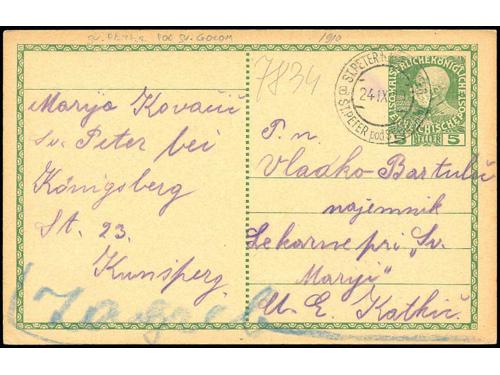 SV. PETER POD SV. GOROM 1910
7834
ST. PETER
24 IX
ŠT. PETER pod
5 HELLER 5
Marija Kovačič
Sv. Peter bei
Königsberg
St. 23.
Kunsperg
T. n.
Vladko Bartulić
najemnik
Lekarne pri „Sv.
Mariji"
M. E. Katkič.
Zagreb